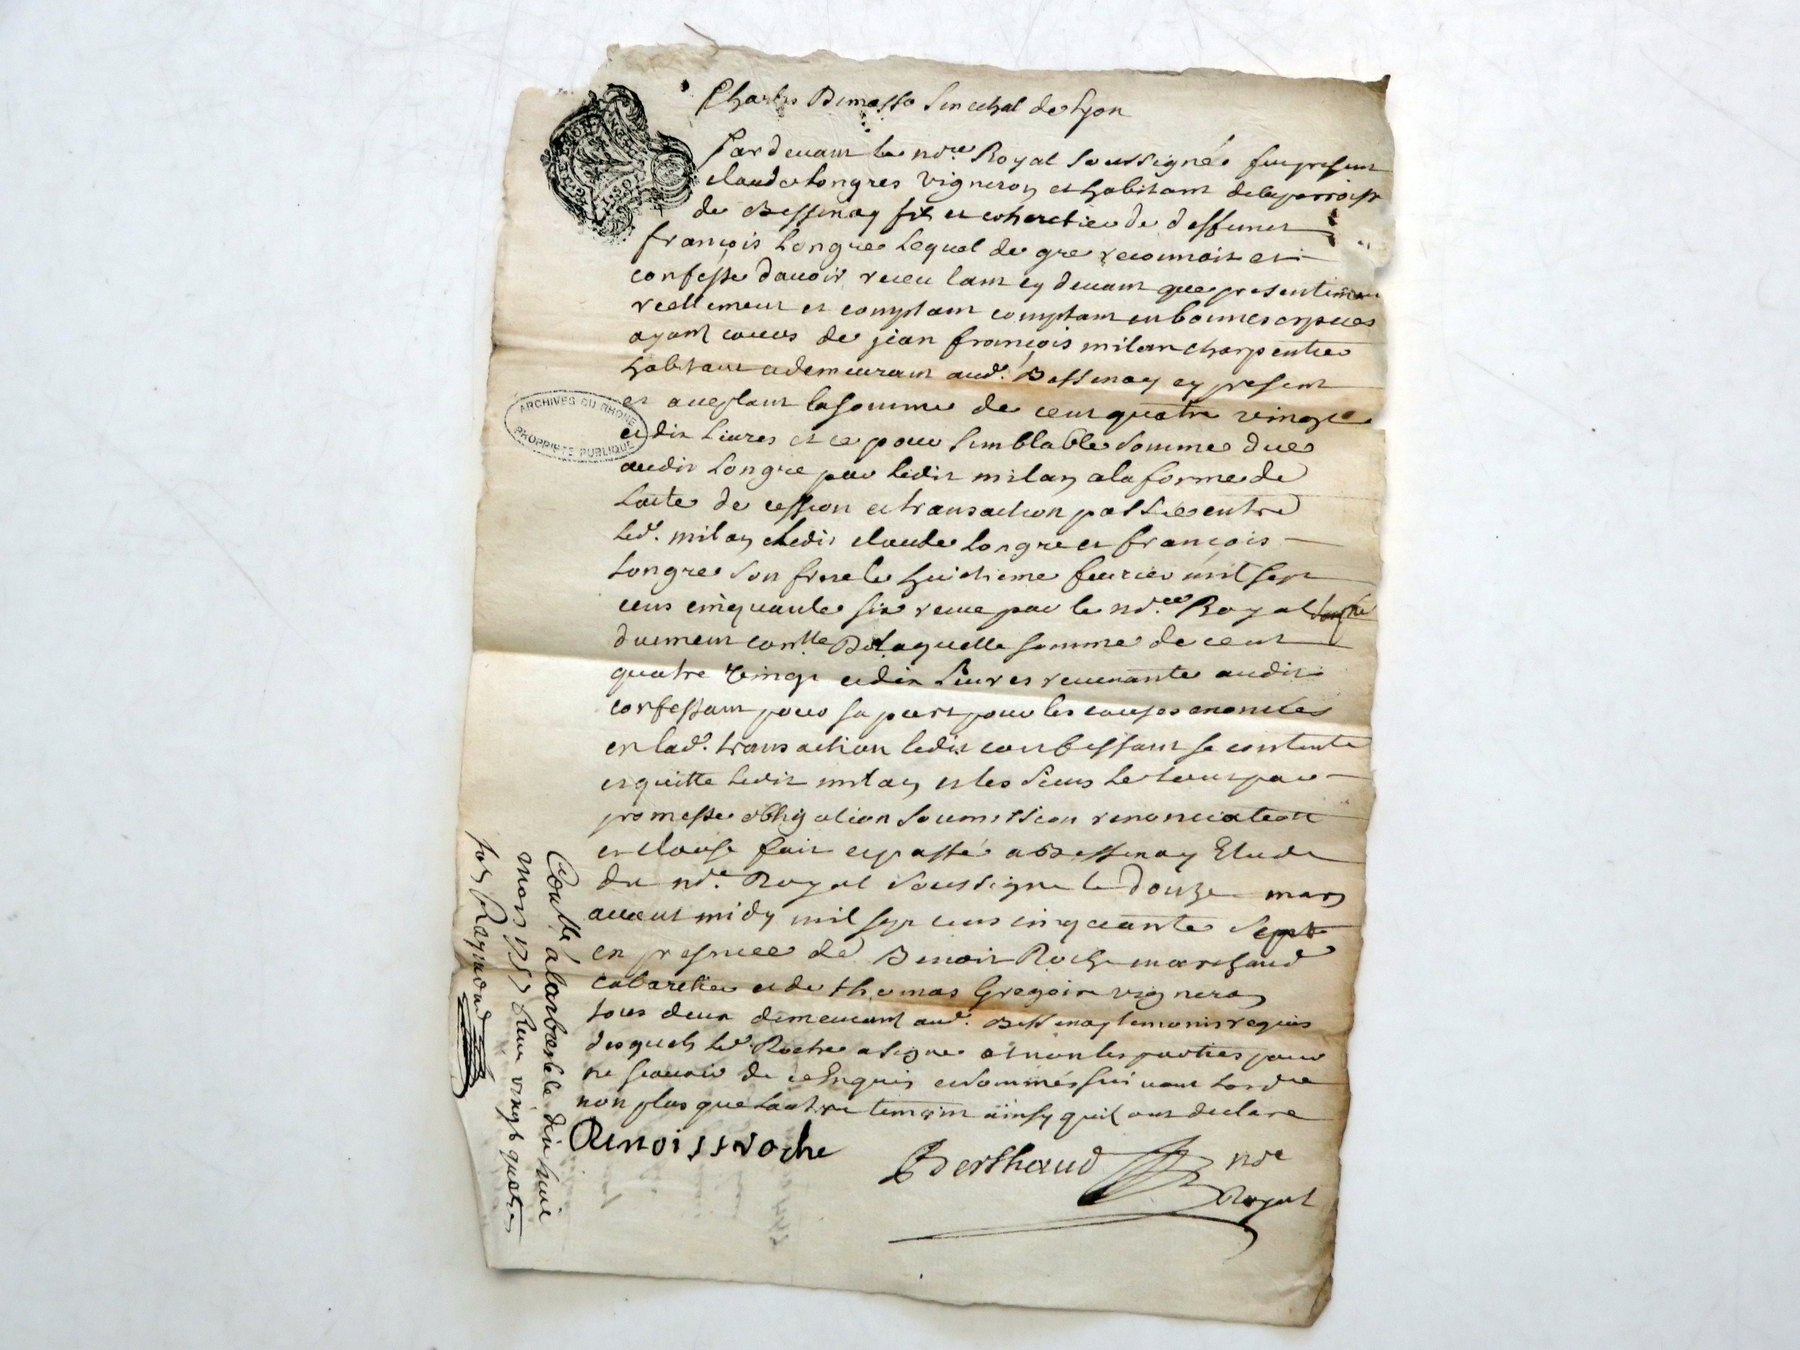 Charles Demasso Senechal de Lyon
Pardevant le nore Royal Soussigné fut present
claude Longres vigneron et habitant de la parroisse
de Bessenay fils et coheretier de deffunct
françois Longre Lequel de gre reconnoit et
confesse davoir receu tant cy devant que presentement
reellement et comptant comptant en bonnes espèces
ayant cours de jean françois milan charpentier
habitant a demeurant aud. Bessenay cy present
et aceptant la somme de cent quatre vingt
et dix Livres et ce pour semblable somme due
audit Longre par ledit milan a la forme de
Lacte de cession et transaction passée entre
led. milan et ledit claude Longre et françois
Longre son frere le huictieme fevrier mil sept
cens cinquante six receue par le nore Royal Soussigné
duement conlle De laquelle somme de cent
quatre vingt et dix Livres revenante audit
confessant pour sa part pour les causes enoncées
en lad. transaction ledit confessant se contente
et quitte ledit milan et les siens le tout par
promesse obligation soumission renonciation
et clause fait et passé a Bessenay Etude
du nore Royal Soussigne le douze mars
avant midy mil sept cens cinquante Sept
en presence de Benoit Roche marchand
cabaretier et de thomas Gregoire vigneron
tous deux demeurant aud. Bessenay temoins requis
desquels led. Roche a signe et non les parties pour
ne scavoir de ce Enquis et sommés suivant Lordre
non plus que Lautre temoin ainsy quil ont declare
Benoist roche
Berthaud nre
Royal
Conllé a larbresle le dix huit
mars 1757 Reçu vingt quatre
sols Raymond
ARCHIVES DU RHONE
PROPRIETE PUBLIQUE